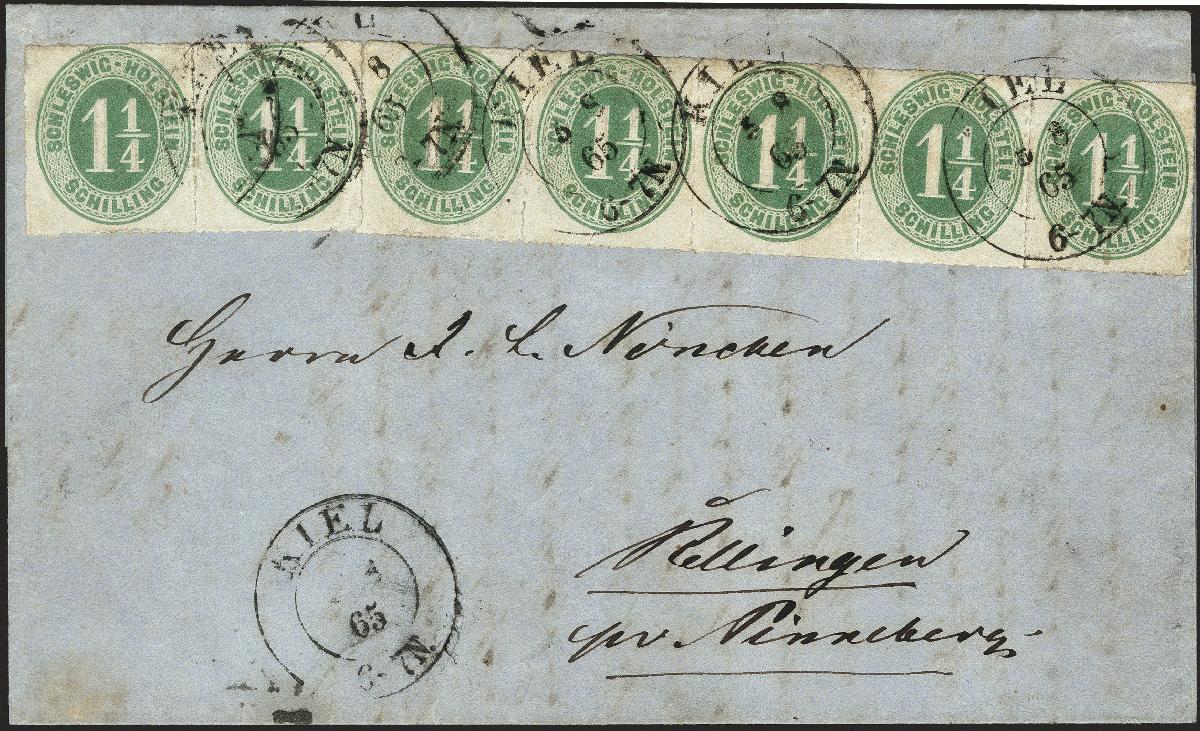 SCHLESWIG-HOLSTEIN
1 1/4
SCHILLING
SCHLESWIG-HOLSTEIN
1 1/4
SCHILLING
SCHLESWIG-HOLSTEIN
1 1/4
SCHILLING
SCHLESWIG-HOLSTEIN
1 1/4
SCHILLING
SCHLESWIG-HOLSTEIN
1 1/4
SCHILLING
SCHLESWIG-HOLSTEIN
1 1/4
SCHILLING
SCHLESWIG-HOLSTEIN
1 1/4
SCHILLING
KIEL
8
65
6-7N.
KIEL
65
6-7N
KIEL
65
6-7N
KIEL
8
65
6-7N
Herrn J. L. Nönchen
Rellingen
pr Pinneberg
KIEL
65
6-7N.